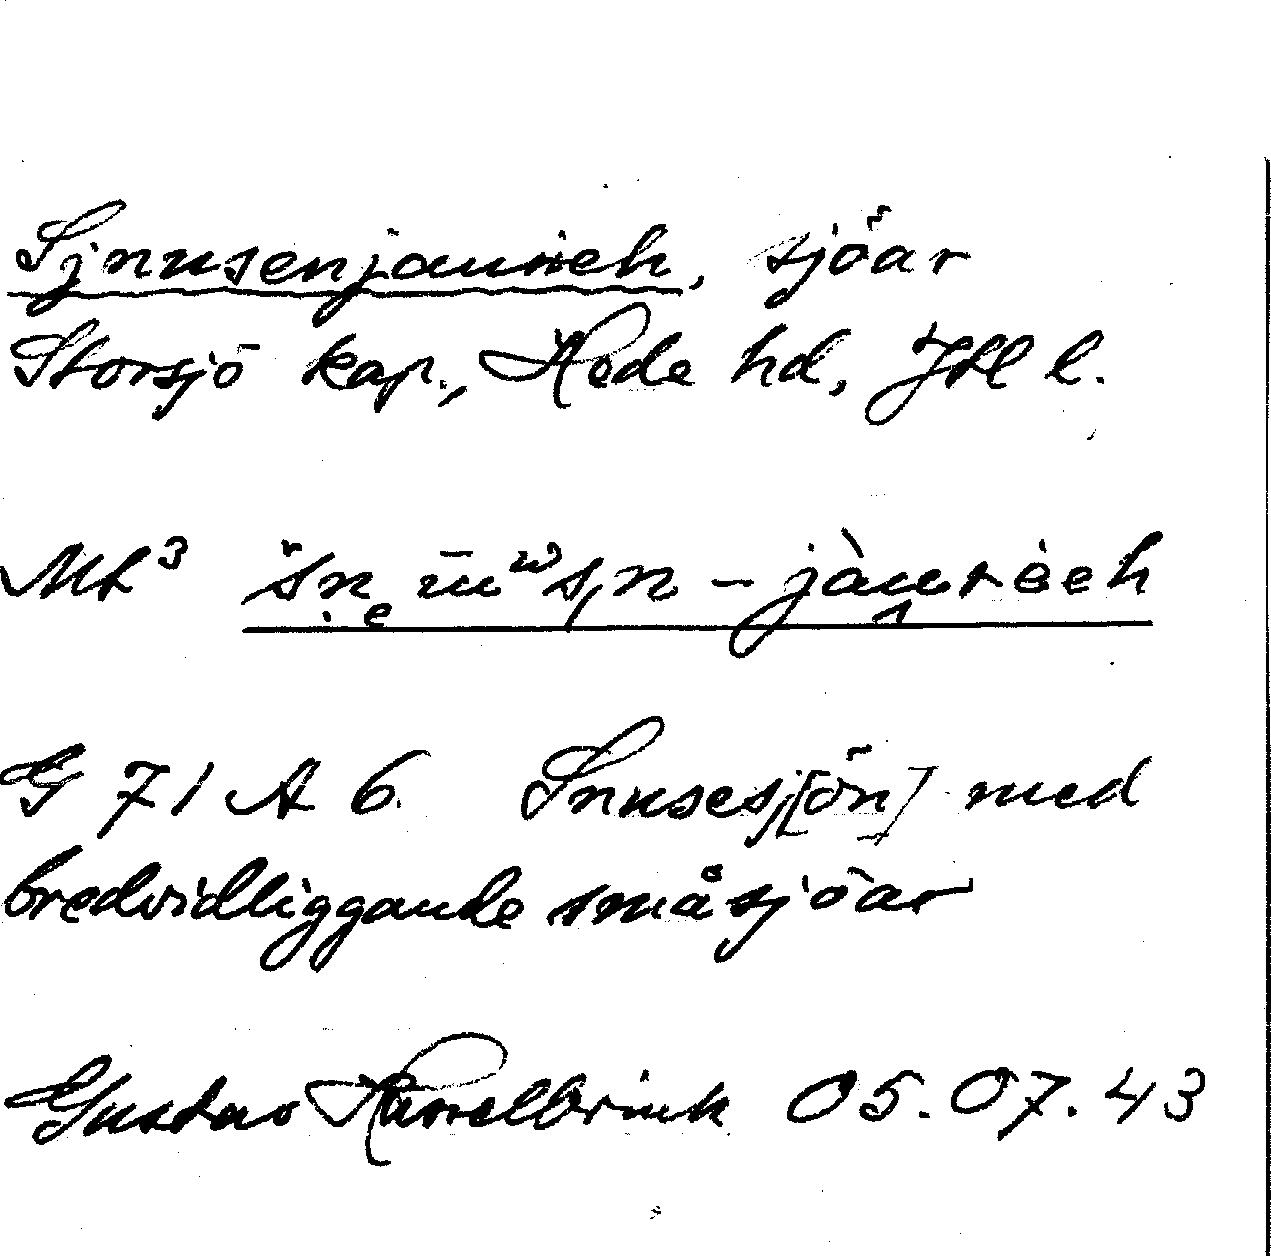 Sjnusenjaurieh, sjöar
Storsjö kap., Hede hd, Jtl l.
Mt³
G 71 A 6 Snusesj[ön] med
bredvidliggande småsjöar
Gustav Hasselbrink 05.07.43